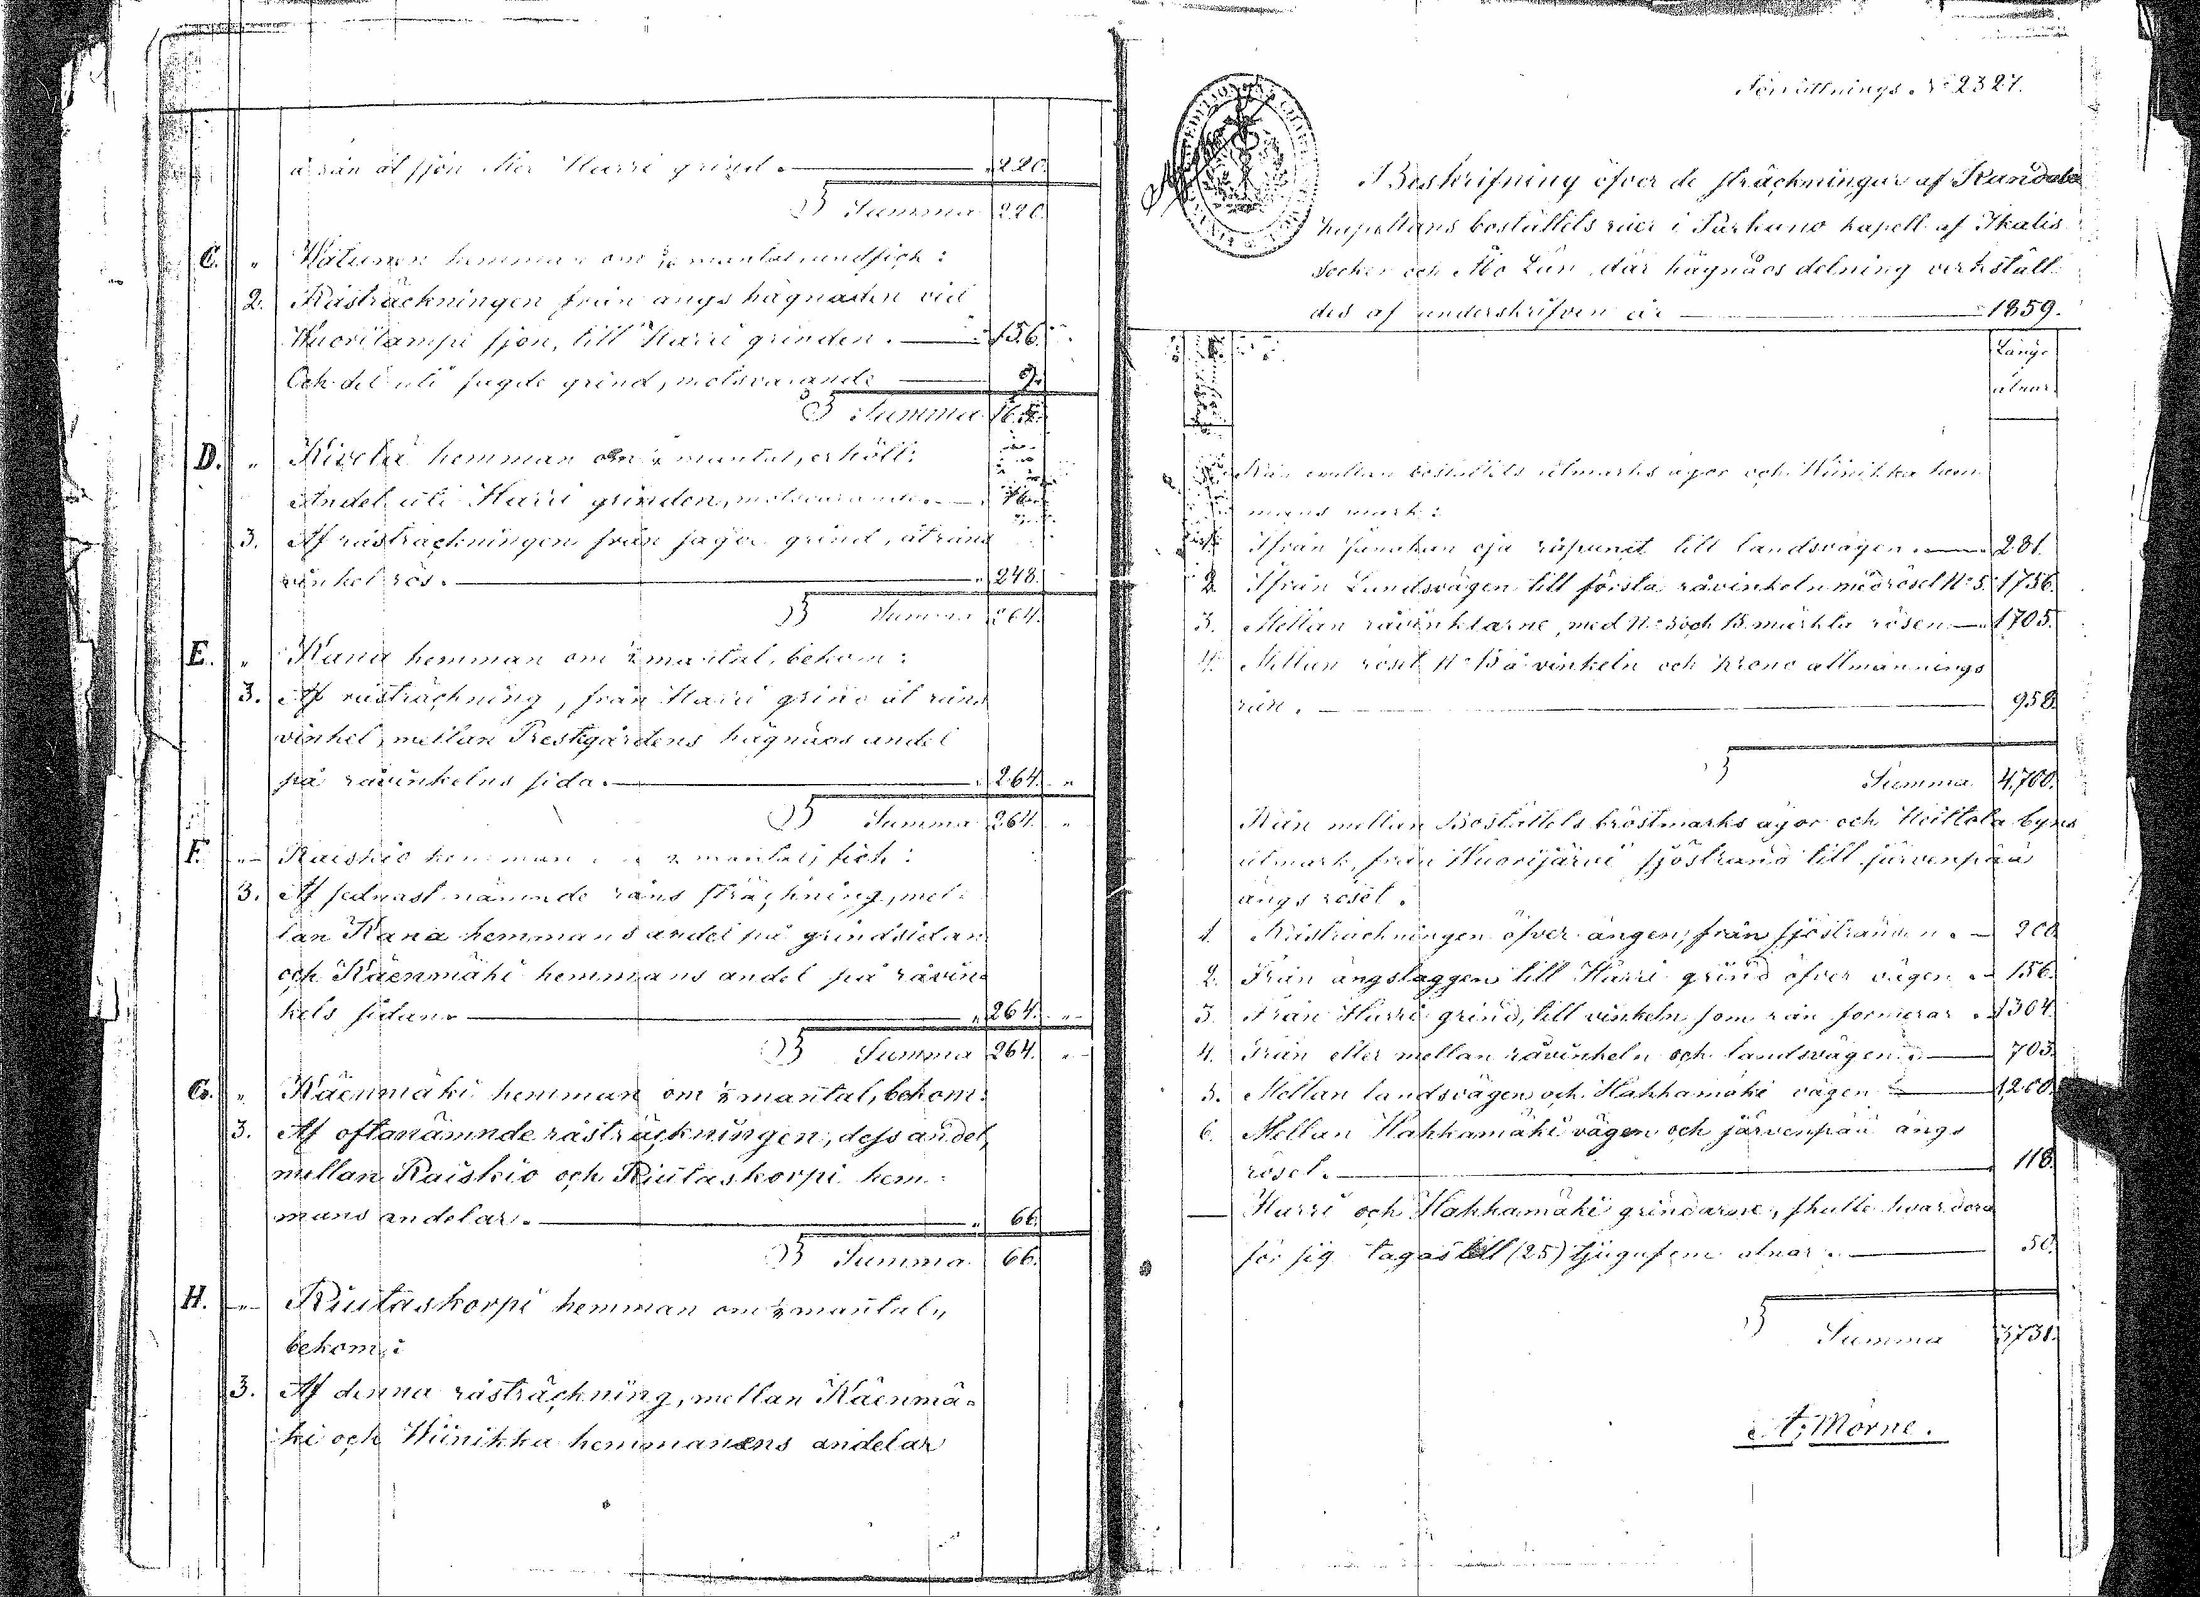 å rån åt sjön eller Harri grind. 220.
Summa 220.
C. " Wätunen hemman om mantal undfick:
2. Råsträckningen från ängs hägnaden vid
Wuorilampi sjön, till Harri grinden. 156.
Och del uti sagde grind, motsvarande 9.
Summa 165.
D. " Kivelä hemman om mantal, erhöll:
Andel uti Harri grinden, motsvarande 16.
3. Af råsträckningen från sagde grind, åt råns
vinkel rös. 248.
Summa 264.
E. " Kana hemman om mantal, bekom:
3. Af råsträckning, från Harri grind åt råns
vinkel, mellan Prestgårdens hägnads andel
på råvinkelns sida. 264. "
Summa 264. "
F. " Raiskio hemman om mantal, fick:
3. Af sednast nämnde råns sträckning, mel-
lan Kana hemmans andel på grindsidan
och Käenmäki hemmans andel på råvin-
kels sidan. 264. "
Summa 264. "
G. " Käenmäki hemman om mantal, bekom:
3. Af oftanämnde råsträckningen, dess andel,
mellan Raiskio och Riutaskorpi hem-
mans andelar. 66.
Summa 66.
H. " Riutaskorpi hemman om mantal,
bekom:
3. Af denna råsträckning, mellan Käenmä-
ki och Hiinikka hemmanens andelar
Förrättnings No 2327.
Beskrifning öfver de sträckningar af
kapellans boställets råer i Parkano kapell af Ikalis
Socken och Åbo Län, där hägnads delning verkställ-
des af underskrifven år 1859.
Längd
alnar.
Rån emellan boställets utmarks ägor och Hiinikka hem-
mans mark:
Ifrån oja råpunct till landsvägen. 281.
2. Ifrån Landsvägen till första råvinkeln med rösel No 5. 1756.
3. Mellan råvinklarne, med No 5 och 13 märkta rösen 1705.
4. Mellan rösel No 13 å vinkeln och Krono allmännings
rån. 958.
Summa 4,700.
Rån mellan Boställets bröstmarks ägor och byns
utmark, från Wuorijärvi sjöstrand till järvenpää
ängs rösel.
1. Råsträckningen öfver ängen, från sjöstranden. 200
2. Från ängslaggen till Harri grind öfver vägen 156.
3. Från Harri grind, till vinkeln som rån formerar 1304.
4. Från eller mellan råvinkeln och landsvägen 703.
5. Mellan landsvägen och Hahkamäki vägen 1,200.
6. Mellan Hahkamäki vägen och järvenpää ängs
rösel. 118.
Harri och Hahkamäki grindarne, skulle hvardera
för sig tagas till (25) tjugufem alnar. 50.
Summa 3731.
A. Mörne.